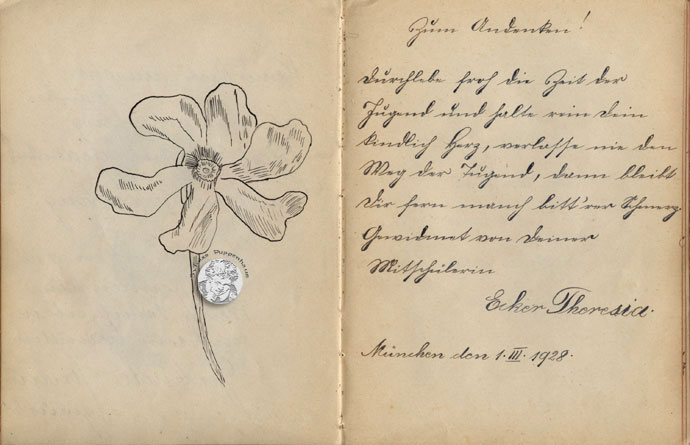 Zum Andenken!
Durchlebe froh die Zeit der
Jugend und halte rein Dein
kindlich Herz, verlasse nie den
Weg der Tugend, dann bleibt
Dir fern manch bitt'rer Schmerz.
Gewidmet von Deiner
Mitschülerin
Ecker Theresia.
München den 1. III. 1928.
Puppenhaus